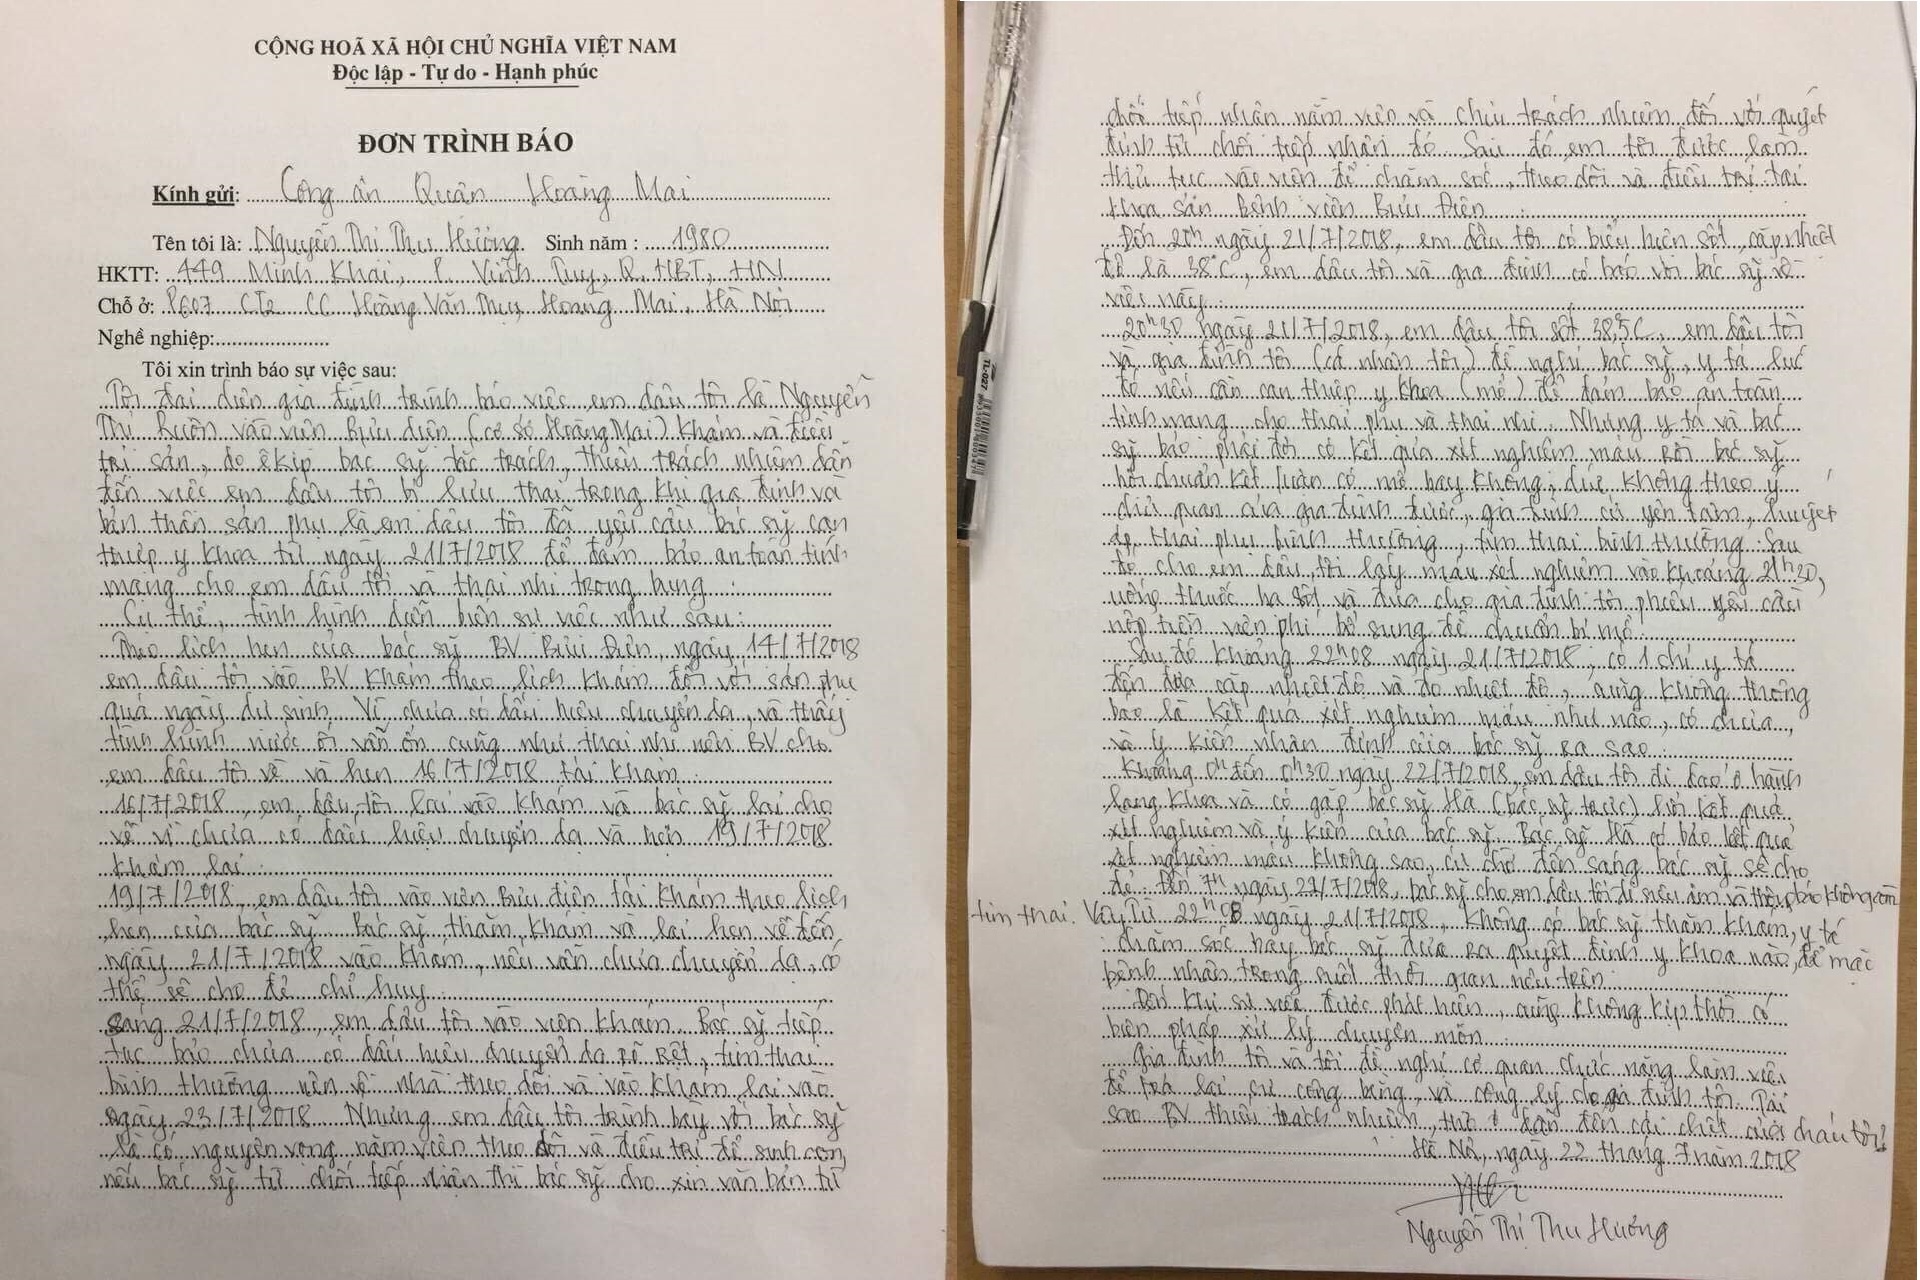 CỘNG HOÃ XÃ HỘI CHỦ NGHĨA VIỆT NAM
Độc lập - Tự do - Hạnh phúc
ĐƠN TRÌNH BÁO
Kính gửi: Công an Quận Hoàng Mai
Tên tôi là: Nguyễn Thị Thu Hương Sinh năm : 1980
HKTT: 449 Minh Khai, P. Vĩnh Tuy, Q. HBT, HN
Chỗ ở: P607 CT2 CC Hoàng Văn Thụ, Hoàng Mai, Hà Nội
Nghề nghiệp:
Tôi xin trình báo sự việc sau:
Tôi đại diện gia đình trình báo việc em dâu tôi là Nguyễn
Thị vào viện Bưu điện (cơ sở Hoàng Mai) khám và điều
trị sản, do êkíp bác sỹ tắc trách, thiếu trách nhiệm dẫn
đến việc em dâu tôi bị lưu thai trong khi gia đình và
bản thân sản phụ là em dâu tôi đã yêu cầu bác sỹ can
thiệp y khoa từ ngày 21/7/2018 để đảm bảo an toàn tính
mạng cho em dâu tôi và thai nhi trong bụng.
Cụ thể, tình hình diễn biến sự việc như sau:
Theo lịch hẹn của bác sỹ BV Bưu Điện, ngày 14/7/2018
em dâu tôi vào BV khám theo lịch khám đối với sản phụ
quá ngày dự sinh. Vì chưa có dấu hiệu chuyển dạ, và thấy
tình hình nước ối vẫn ổn cũng như thai nhi nên BV cho
em dâu tôi về và hẹn 16/7/2018 tái khám.
16/7/2018, em dâu tôi lại vào khám và bác sỹ lại cho
về vì chưa có dấu hiệu chuyển dạ và hẹn 19/7/2018
khám lại.
19/7/2018, em dâu tôi vào viện Bưu điện tái khám theo lịch
hẹn của bác sỹ. Bác sỹ thăm khám và lại hẹn về đến
ngày 21/7/2018 vào khám, nếu vẫn chưa chuyển dạ, có
thể sẽ cho đẻ chỉ huy.
Sáng 21/7/2018, em dâu tôi vào viện khám. Bác sỹ tiếp
tục bảo chưa có dấu hiệu chuyển dạ rõ rệt, tim thai
bình thường nên về nhà theo dõi và vào khám lại vào
ngày 23/7/2018. Nhưng em dâu tôi trình bày với bác sỹ
là có nguyện vọng nằm viện theo dõi và điều trị để sinh con,
nếu bác sỹ từ chối tiếp nhận thì bác sỹ cho xin văn bản từ
chối tiếp nhận nằm viện và chịu trách nhiệm đối với quyết
định từ chối tiếp nhận đó. Sau đó em tôi được làm
thủ tục vào viện để chăm sóc, theo dõi và điều trị tại
khoa sản Bệnh viện Bưu Điện.
Đến 20h ngày 21/7/2018, em dâu tôi có biểu hiện sốt, cặp nhiệt
độ là 38°C, em dâu tôi và gia đình có báo với bác sỹ về
việc này.
20h30 ngày 21/7/2018, em dâu tôi sốt 38,5°C, em dâu tôi
và gia đình tôi (cá nhân tôi) đề nghị bác sỹ, y tá lúc
đó nếu cần can thiệp y khoa (mổ) để đảm bảo an toàn
tính mạng cho thai phụ và thai nhi. Nhưng y tá và bác
sỹ bảo phải đợi có kết quả xét nghiệm máu rồi bác sỹ
hội chuẩn kết luận có mổ hay không, chứ không theo ý
chủ quan của gia đình được, gia đình cứ yên tâm, huyết
áp thai phụ bình thường, tim thai bình thường. Sau
đó cho em dâu tôi lấy máu xét nghiệm vào khoảng 21h30,
uống thuốc hạ sốt và đưa cho gia đình tôi phiếu yêu cầu
nộp tiền viện phí bổ sung để chuẩn bị mổ.
Sau đó khoảng 22h08 ngày 21/7/2018, có 1 chị y tá
đến đưa cặp nhiệt độ và đo nhiệt độ, cũng không thông
báo là kết quả xét nghiệm máu như nào, có chưa,
và ý kiến nhận định của bác sỹ ra sao.
Khoảng 0h đến 0h30 ngày 22/7/2018, em dâu tôi đi dạo ở hành
lang khoa và có gặp bác sỹ Hà (bác sỹ trực) hỏi kết quả
xét nghiệm và ý kiến của bác sỹ. Bác sỹ Hà có bảo kết quả
xét nghiệm máu không sao, cứ chờ đến sáng bác sỹ sẽ cho
đẻ. Đến 7h ngày 22/7/2018, bác sỹ cho em dâu tôi đi siêu âm và thông báo không còn
tim thai. Vậy từ 22h08 ngày 21/7/2018, không có bác sỹ thăm khám, y tá
chăm sóc hay bác sỹ đưa ra quyết định y khoa nào, để mặc
bệnh nhân trong suốt thời gian nêu trên.
Đến khi sự việc được phát hiện, cũng không kịp thời có
biện pháp xử lý chuyên môn.
Gia đình tôi và tôi đề nghị cơ quan chức năng làm việc
để trả lại sự công bằng và công lý cho gia đình tôi. Tại
sao BV thiếu trách nhiệm, thờ ơ dẫn đến cái chết của cháu tôi?
Hà Nội, ngày 22 tháng 7 năm 2018
Nguyễn Thị Thu Hương
TL-027